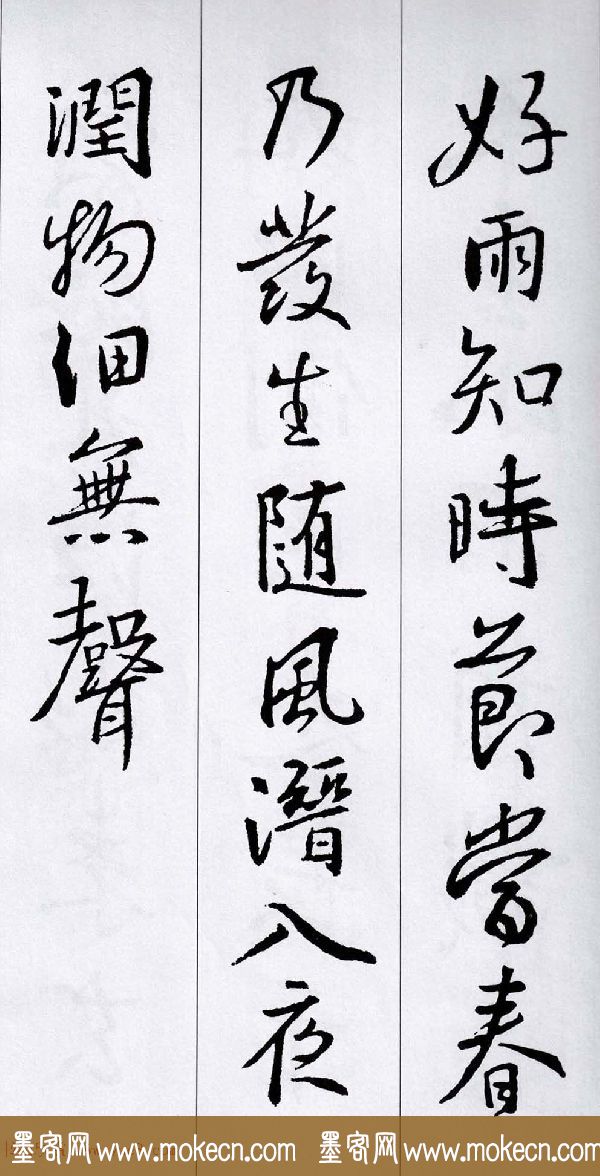 好雨知時節當春
乃發生随風潛入夜
潤物細無聲
墨客网 www.mokecn.com 墨客网 www.mokecn.com